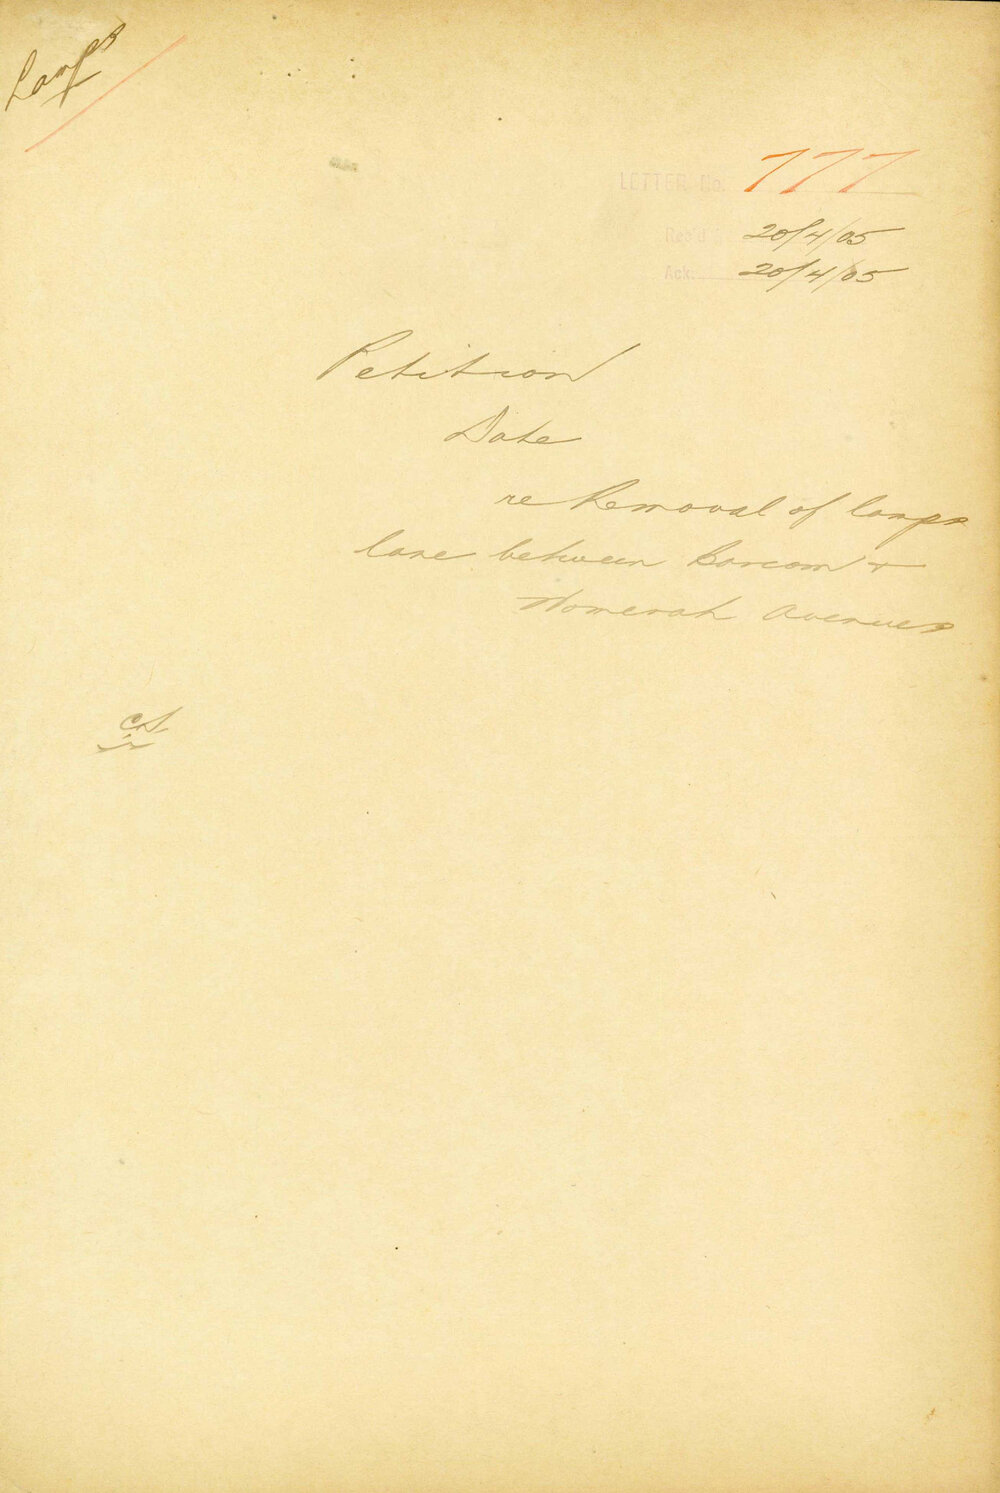 Lamps
LETTER No. 777
Rec'd 20/4/05
Ack. 20/4/05
Petition
Date
re Removal of lamps
lane between Barcom &
Womerah Avenues